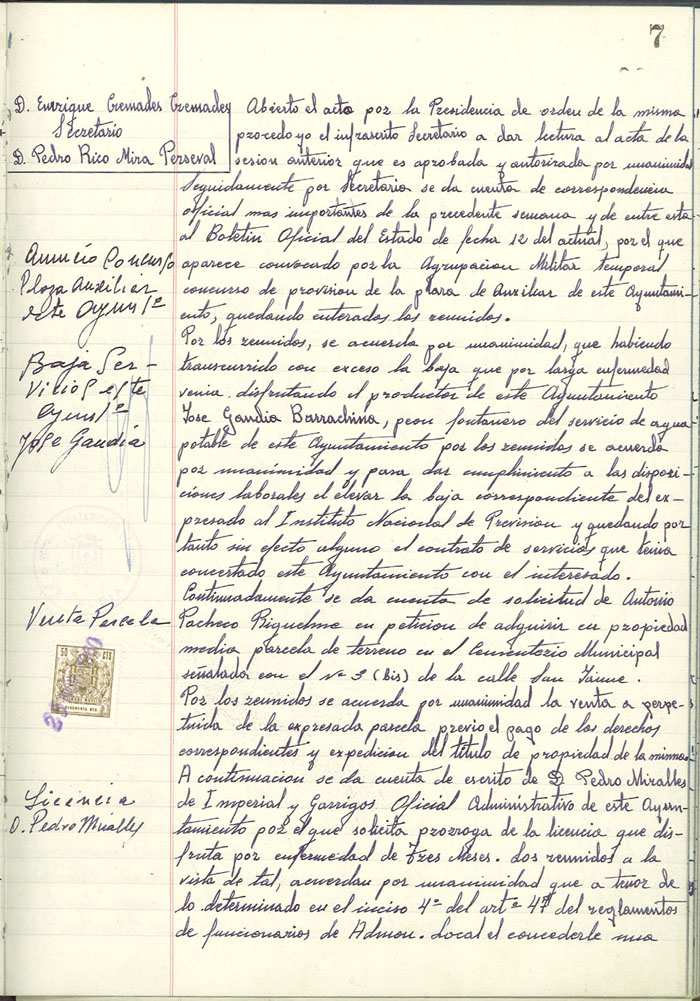 7
D. Enrique Cremades Cremades
Secretario
D. Pedro Rico Mira Perseval
Abierto el acto por la Presidencia de orden de la misma
procedo yo el infrascrito Secretario a dar lectura al acta de la
sesion anterior que es aprobada y autorizada por unanimidad
Seguidamente por Secretario se da cuenta de correspondencia
oficial mas importantes de la precedente semana y de entre esta
al Boletin Oficial del Estado de fecha 12 del actual, por el que
Anuncio Concurso
Plaza Auxiliar
este Ayunt°
aparece convocado por la Agrupacion Militar Temporal
concurso de provision de la plaza de Auxiliar de este Ayuntami-
ento, quedando enterados los reunidos.
Baja Ser-
vicios este
Ayunt°
Jose Gandia
Por los reunidos, se acuerda por unanimidad, que habiendo
transcurrido con exceso la baja que por larga enfermedad
venia disfrutando el productor de este Ayuntamiento
Jose Gandia Barrachina, peon fontanero del servicio de agua
potable de este Ayuntamiento por los reunidos se acuerda
por unanimidad y para dar cumplimiento a las disposi-
ciones laborales el elevar la baja correspondiente del ex-
presado al Instituto Nacional de Prevision y quedando por
tanto sin efecto alguno el contrato de servicios que tenia
concertado este Ayuntamiento con el interesado.
Venta Parcela
Continuadamente se da cuenta de solicitud de Antonio
Pacheco Riquelme en peticion de adquirir en propiedad
media parcela de terreno en el Cementerio Municipal
señalada con el nº 3 (bis) de la calle San Jaime.
50 CTS
Por los reunidos se acuerda por unanimidad la venta a perpe-
tuidad de la expresada parcela previo el pago de los derechos
correspondientes y expedicion del titulo de propiedad de la misma.
Licencia
D. Pedro Miralles
A continuacion se da cuenta de escrito de D. Pedro Miralles
de Imperial y Garrigos Oficial Administrativo de este Ayun-
tamiento por el que solicita prorroga de la licencia que dis-
fruta por enfermedad de Tres Meses. Los reunidos a la
vista de tal, acuerdan por unanimidad que a tenor de
lo determinado en el inciso 4º del artº 47 del reglamentos
de funcionarios de Admon. Local el concederle una